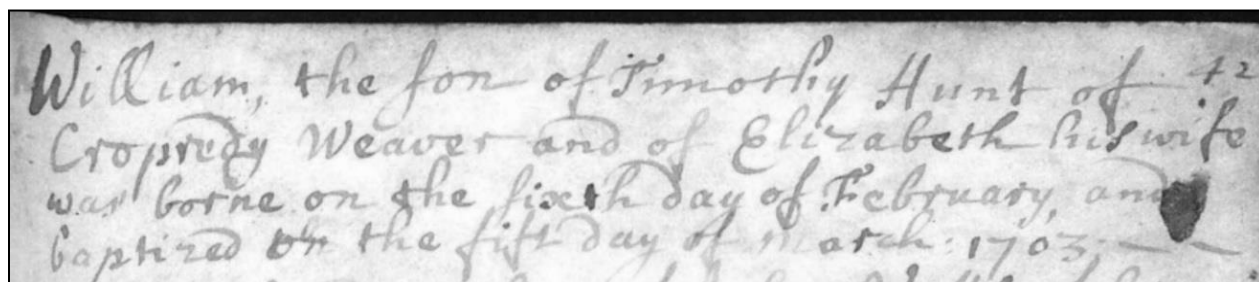 William, the son of Timothy Hunt of 42
Cropredy Weaver and of Elizabeth his wife
was borne on the sixth day of February, and
baptized on the fift day of march: 1703: